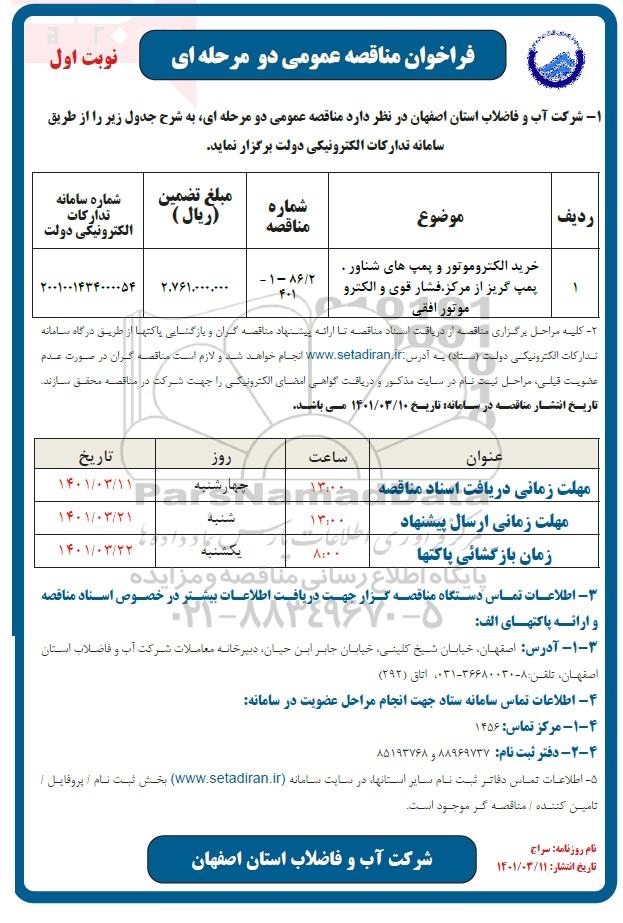 فراخوان مناقصه عمومی دو مرحله ای
نوبت اول
۱- شرکت آب و فاضلاب استان اصفهان در نظر دارد مناقصه عمومی دو مرحله ای، به شرح جدول زیر را از طریق
سامانه تدارکات الکترونیکی دولت برگزار نماید.
ردیف موضوع شماره مناقصه مبلغ تضمین (ریال) شماره سامانه تدارکات الکترونیکی دولت
۱ خرید الکتروموتور و پمپ های شناور ، پمپ گریز از مرکز،فشار قوی و الکترو موتور افقی ۸۶/۲ – ۱ - ۴۰۱ ۲.۷۶۱.۰۰۰.۰۰۰ ۲۰۰۱۰۰۱۴۳۴۰۰۰۰۵۴
۲- کلیه مراحل برگزاری مناقصه از دریافت اسناد مناقصه تا ارائه پیشنهاد مناقصه گران و بازگشایی پاکتها از طریق درگاه سامانه
تدارکات الکترونیکی دولت (ستاد) به آدرس:www.setadiran.ir انجام خواهد شد و لازم است مناقصه گران در صورت عدم
عضویت قبلی، مراحل ثبت نام در سایت مذکور و دریافت گواهی امضای الکترونیکی را جهت شرکت در مناقصه محقق سازند.
تاریخ انتشار مناقصه در سامانه: تاریخ ۱۴۰۱/۰۳/۱۰ می باشد.
عنوان ساعت روز تاریخ
مهلت زمانی دریافت اسناد مناقصه ۱۳:۰۰ چهارشنبه ۱۴۰۱/۰۳/۱۱
مهلت زمانی ارسال پیشنهاد ۱۳:۰۰ شنبه ۱۴۰۱/۰۳/۲۱
زمان بازگشائی پاکتها ۸:۰۰ یکشنبه ۱۴۰۱/۰۳/۲۲
ParsNamadData
مرکز فرآوری اطلاعات پارس نماد داده ها
پایگاه اطلاع رسانی مناقصه و مزایده
۰۲۱-۸۸۳۴۹۶۷۰-۵
۳- اطلاعات تماس دستگاه مناقصه گزار جهت دریافت اطلاعات بیشتر در خصوص اسناد مناقصه
و ارائه پاکتهای الف:
۳-۱- آدرس: اصفهان، خیابان شیخ کلینی، خیابان جابر ابن حیان، دبیرخانه معاملات شرکت آب و فاضلاب استان
اصفهان، تلفن:۸-۰۳۱-۳۶۶۸۰۰۳۰، اتاق (۲۹۲)
۴- اطلاعات تماس سامانه ستاد جهت انجام مراحل عضویت در سامانه:
۴-۱- مرکز تماس: ۱۴۵۶
۴-۲- دفتر ثبت نام: ۸۸۹۶۹۷۳۷ و ۸۵۱۹۳۷۶۸
۵- اطلاعات تماس دفاتر ثبت نام سایر استانها، در سایت سامانه (www.setadiran.ir) بخش ثبت نام / پروفایل /
تامین کننده / مناقصه گر موجود است.
شرکت آب و فاضلاب استان اصفهان
نام روزنامه: سراج
تاریخ انتشار: ۱۴۰۱/۰۳/۱۱